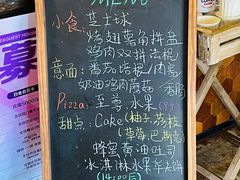 MENU
小食：芝士冰
烤翅薯角拼盘
鸡肉双拼法棍
意面：番茄培根/肉酱
奶油鸡肉蘑菇
Pizza：至尊、水果
甜点：Cake（柚子.荔枝
草莓.巴斯克）
蜂蜜黄油吐司
冰淇淋水果华夫饼
(14:00后)
募